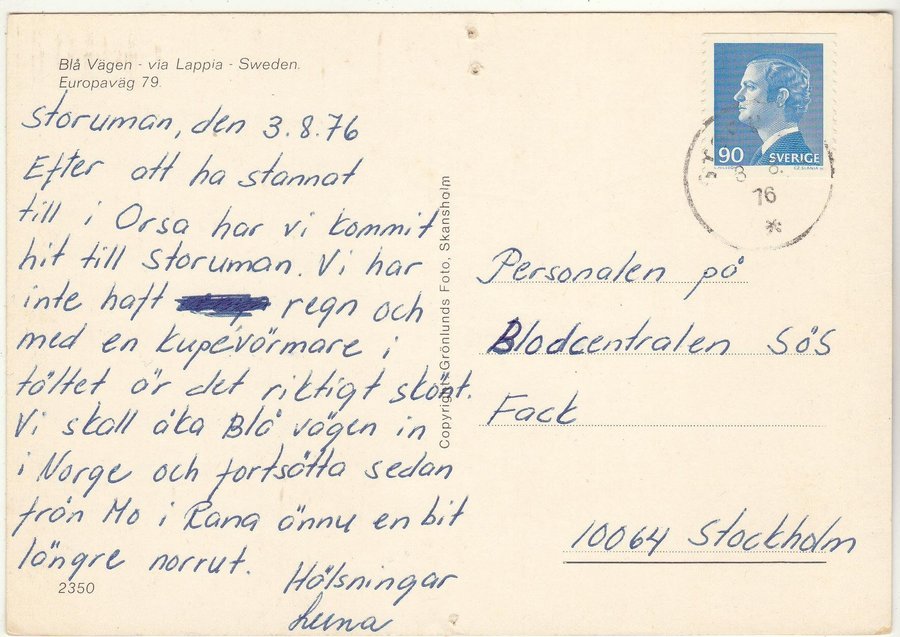 Blå Vägen - via Lappia - Sweden.
Europaväg 79.
Storuman, den 3.8.76
Efter att ha stannat
till i Orsa har vi kommit
hit till Storuman. Vi har
inte haft regn och
med en kupévärmare i
tältet är det riktigt skönt.
Vi skall åka Blå vägen in
i Norge och fortsätta sedan
från Mo i Rana ännu en bit
längre norrut.
Hälsningar
2350
Copyright: Grönlunds Foto, Skansholm
90 SVERIGE
76
Personalen på
Blodcentralen SöS
Fack
10064 Stockholm